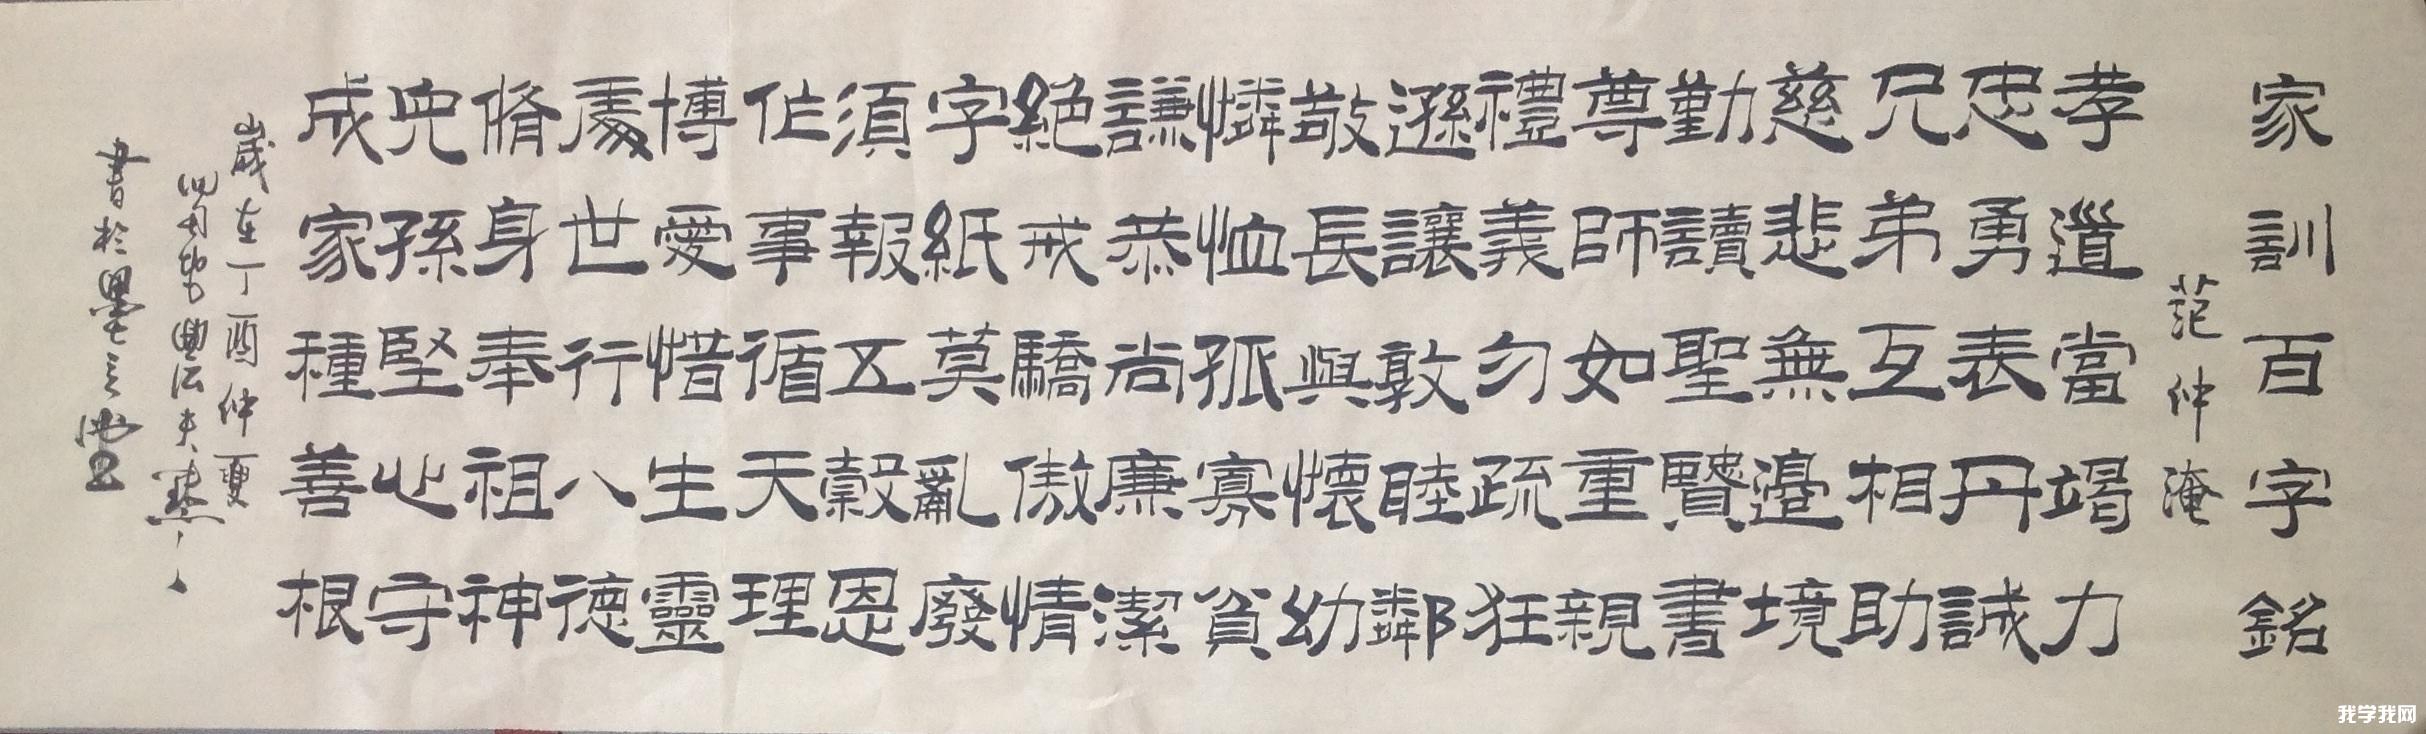 家訓百字銘
范仲淹
孝道當竭力
忠勇表丹誠
兄弟互相助
慈悲無邊境
勤讀聖賢書
尊師如重親
禮義勿疏狂
遜讓敦睦鄰
敬長與懷幼
憐恤孤寡貧
謙恭尚廉潔
絕戒驕傲情
字紙莫亂廢
須報五穀恩
作事循天理
博愛惜生靈
處世行八德
脩身奉祖神
兒孫堅心守
成家種善根
歲在丁酉仲夏
書於墨
我学我网